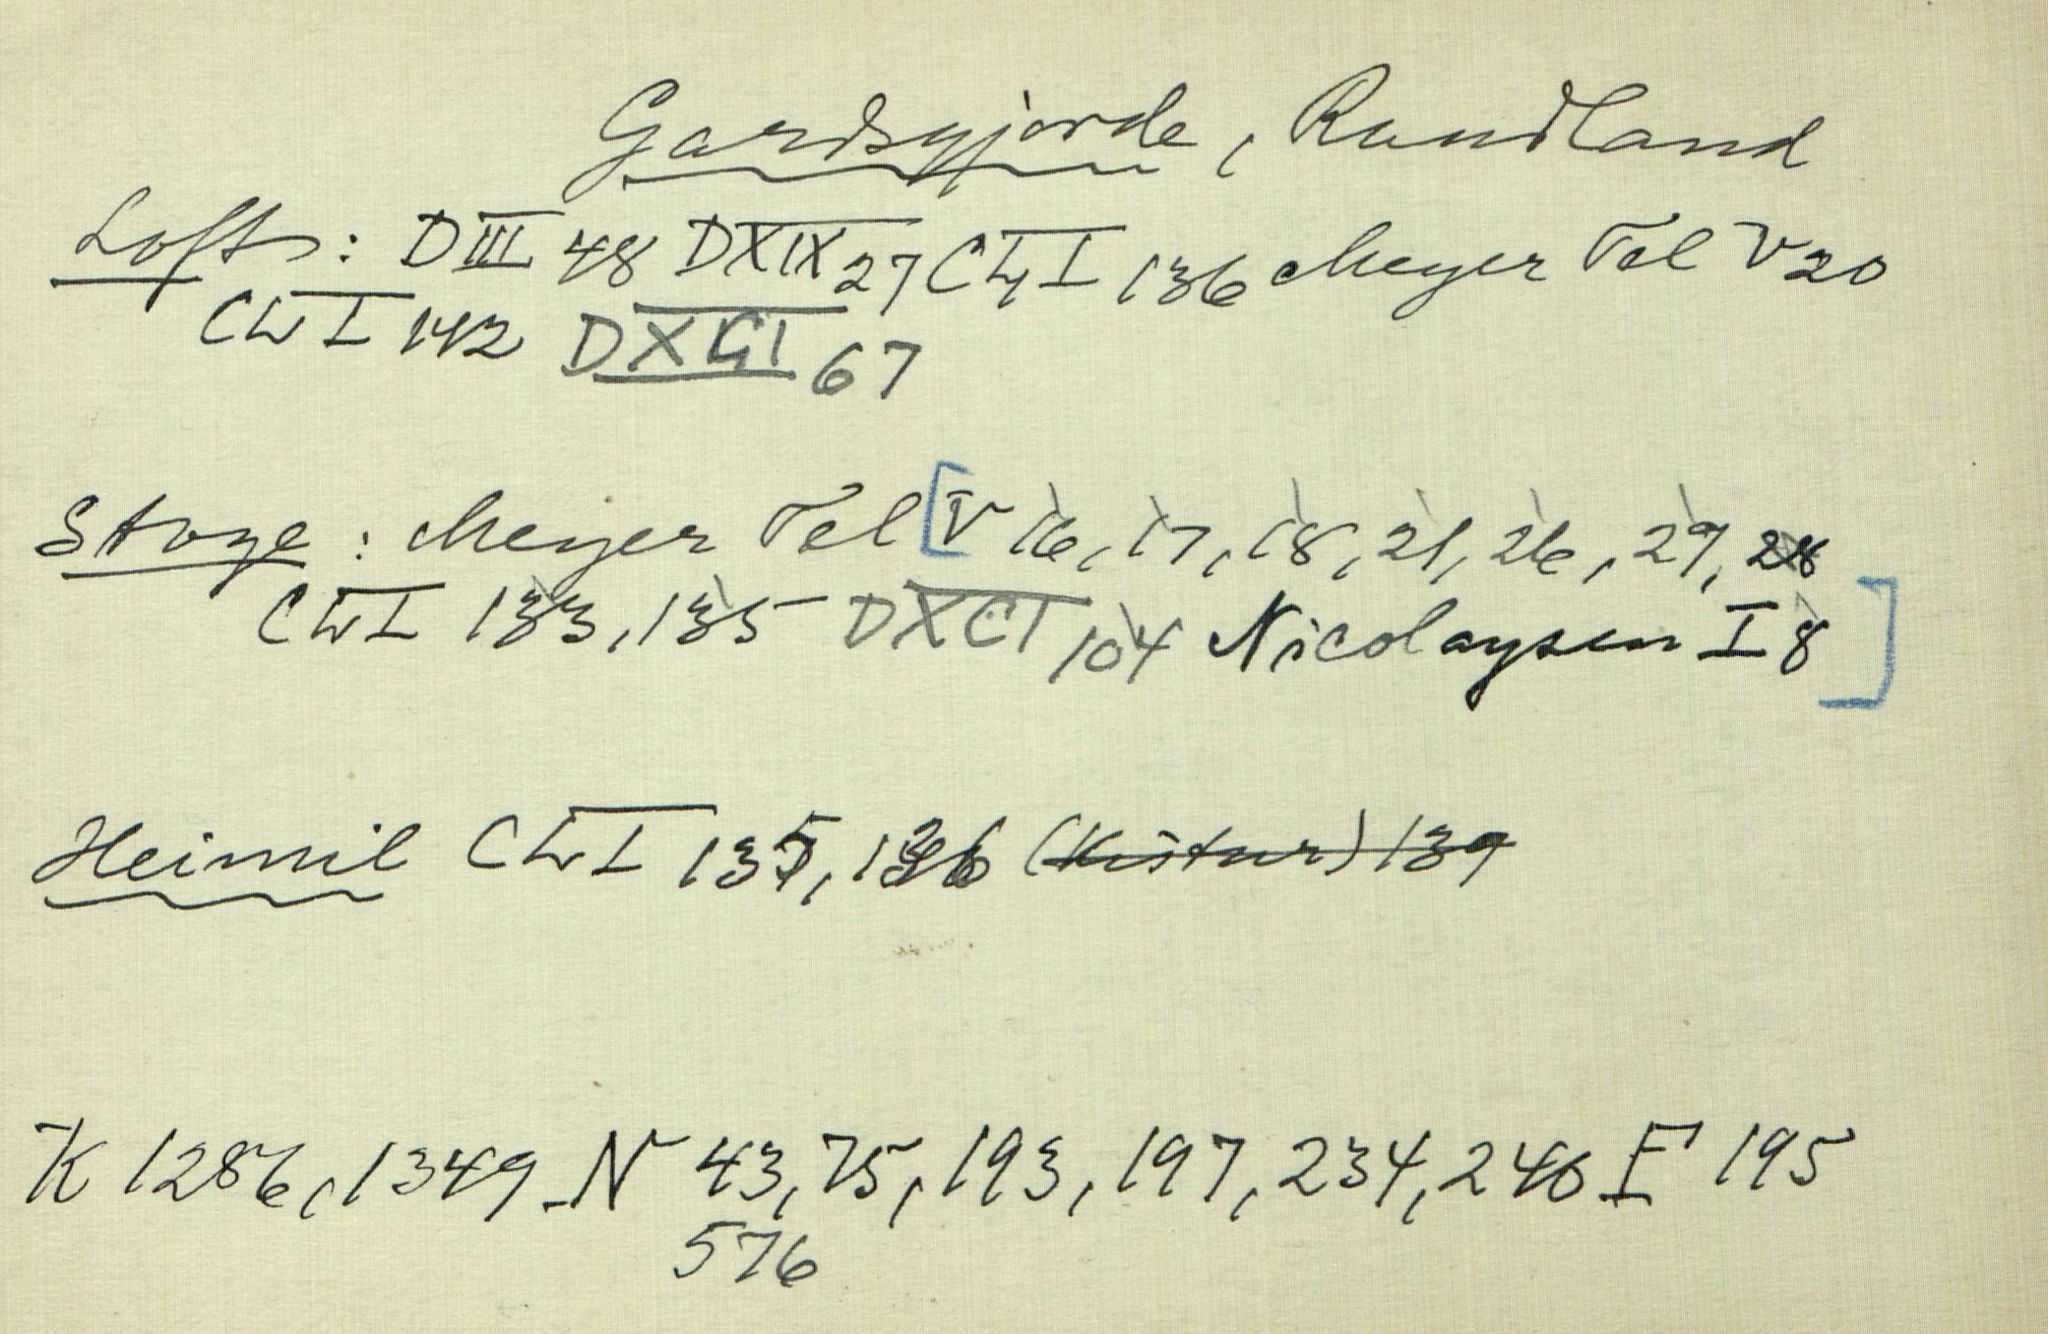 Gardsgjorde, Raudland
Loft: D III 48 D XIX 27 CLVI 136 Meyer Tel V 20
CLVI 142 D XCI 67
Stoge: Meyer Tel [V 16, 17, 18, 21, 26, 29, 28
CLVI 133, 135 D XCI 104 Nicolaysen I 8]
Heimil CLVI 135, 136 (Kistur) 139
K 1286, 1349 N 43, 75, 193, 197, 234, 246 F 195
576